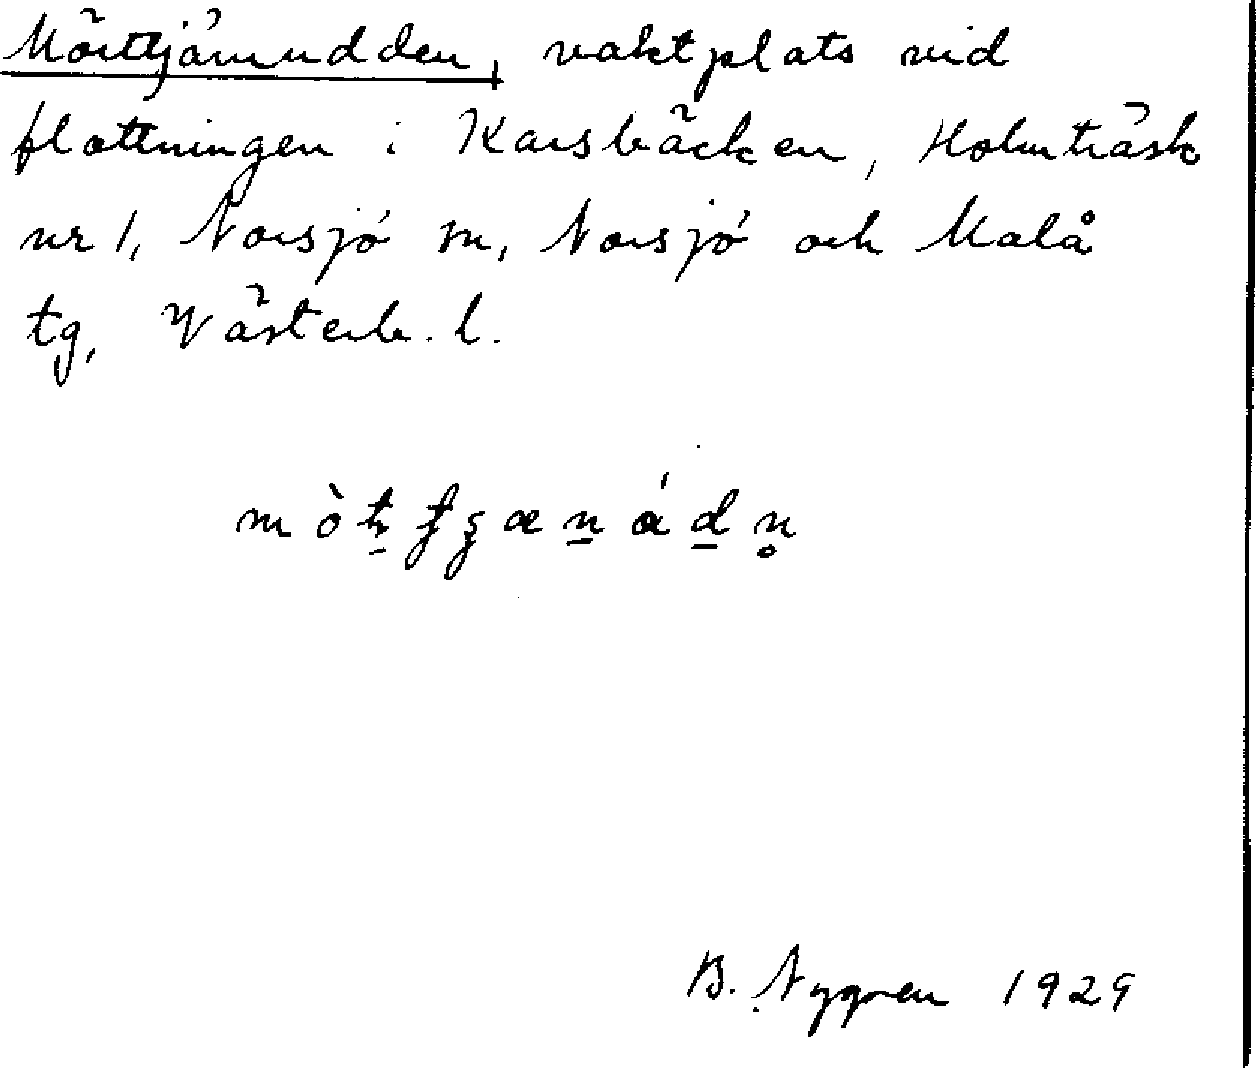 Mörttjärnudden, vaktplats vid
flottningen i Karsbäcken, Holmträsk
nr 1, Norsjö sn, Norsjö och Malå
tg, Västerb. l.
B. Nygren 1929